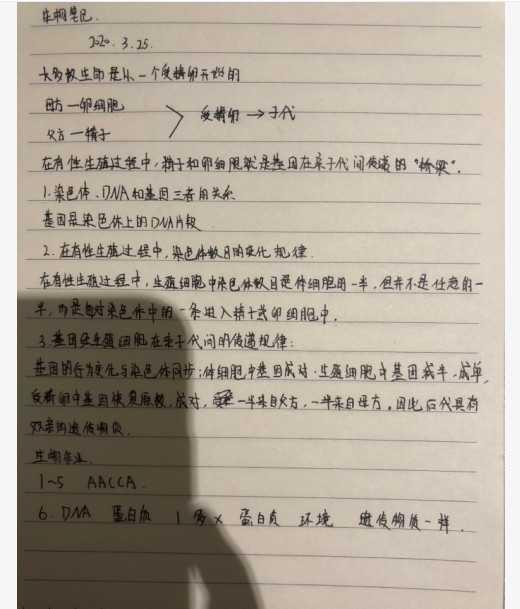 生物笔记.
2020.3.25.
大多数生命是从一个受精卵开始的
母方—卵细胞
受精卵→子代
父方—精子
在有性生殖过程中,精子和卵细胞就是基因在亲子代间传递的“桥梁”.
1.染色体、DNA和基因三者的关系
基因是染色体上的DNA片段
2.在有性生殖过程中,染色体数目的变化规律.
在有性生殖过程中,生殖细胞中染色体数目是体细胞的一半,但并不是任意的一
半,而是每对染色体中的一条进入精子或卵细胞中.
3.基因经生殖细胞在亲子代间的传递规律:
基因的行为变化与染色体同步:体细胞中基因成对.生殖细胞中基因减半.成单,
受精卵中基因恢复原数,成对,一半来自父方,一半来自母方.因此后代具有
双亲的遗传物质.
生物作业.
1~5 AACCA.
6.DNA 蛋白质 1 多 X 蛋白质 环境 遗传物质一样.